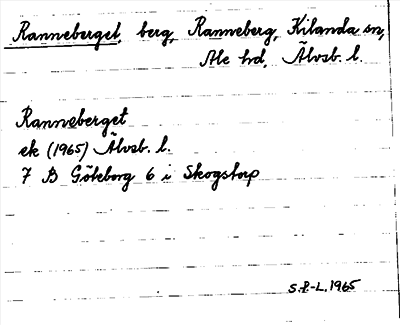 Ranneberget, berg, Ranneberg, Kilanda sn,
Ale hd, Älvsb. l.
Ranneberget
ek (1965) Älvsb. l.
7 B Göteborg 6 i Skogstorp
S.P-L. 1965